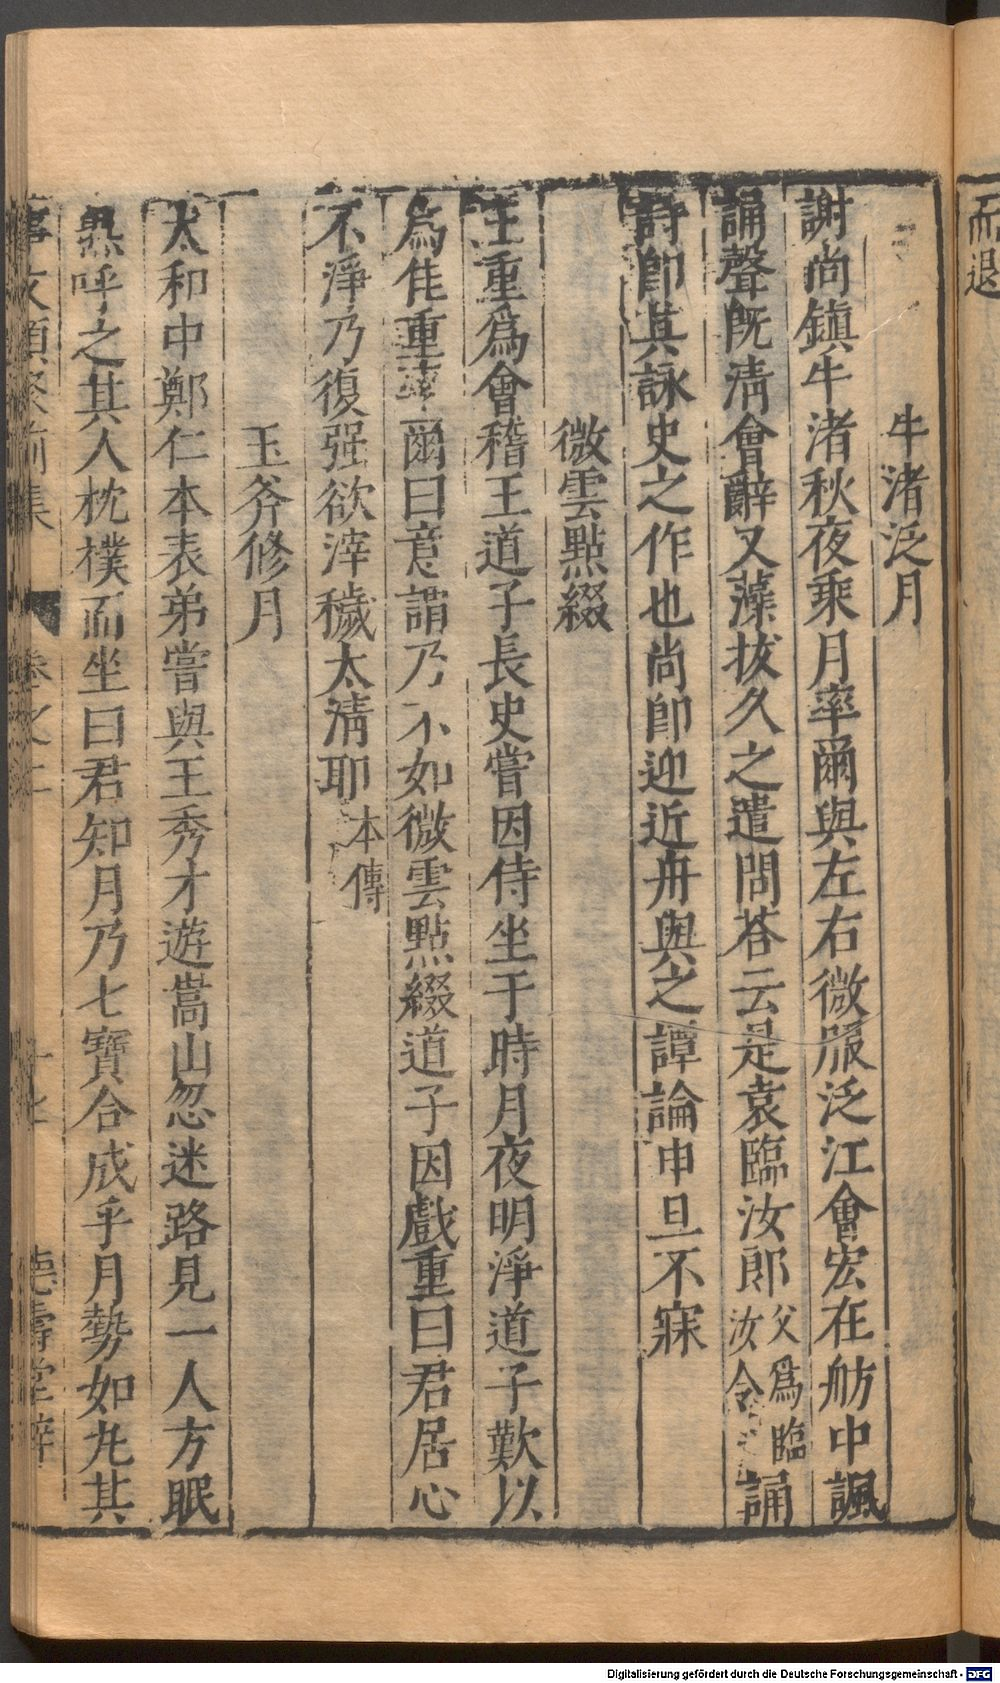 而退
牛渚泛月
謝尚鎮牛渚秋夜乘月率爾與左右微服泛江會宏在舫中諷
誦聲旣清會辭又藻拔久之遣問荅云是袁臨汝郎父爲臨汝令誦
詩卽其詠史之作也尚卽迎近舟與之譚論申旦不寐
微雲點綴
王重爲會稽王道子長史嘗因侍坐于時月夜明淨道子歎以
爲佳重率爾曰意謂乃不如微雲點綴道子因戲重曰君居心
不淨乃復强欲滓穢太清耶本傳
玉斧修月
太和中鄭仁本表弟嘗與王秀才遊嵩山忽迷路見一人方眠
熟呼之其人枕樸而坐曰君知月乃七寶合成乎月勢如丸其
事文類聚前集 卷之二 德壽堂梓
Digitalisierung gefördert durch die Deutsche Forschungsgemeinschaft - DFG